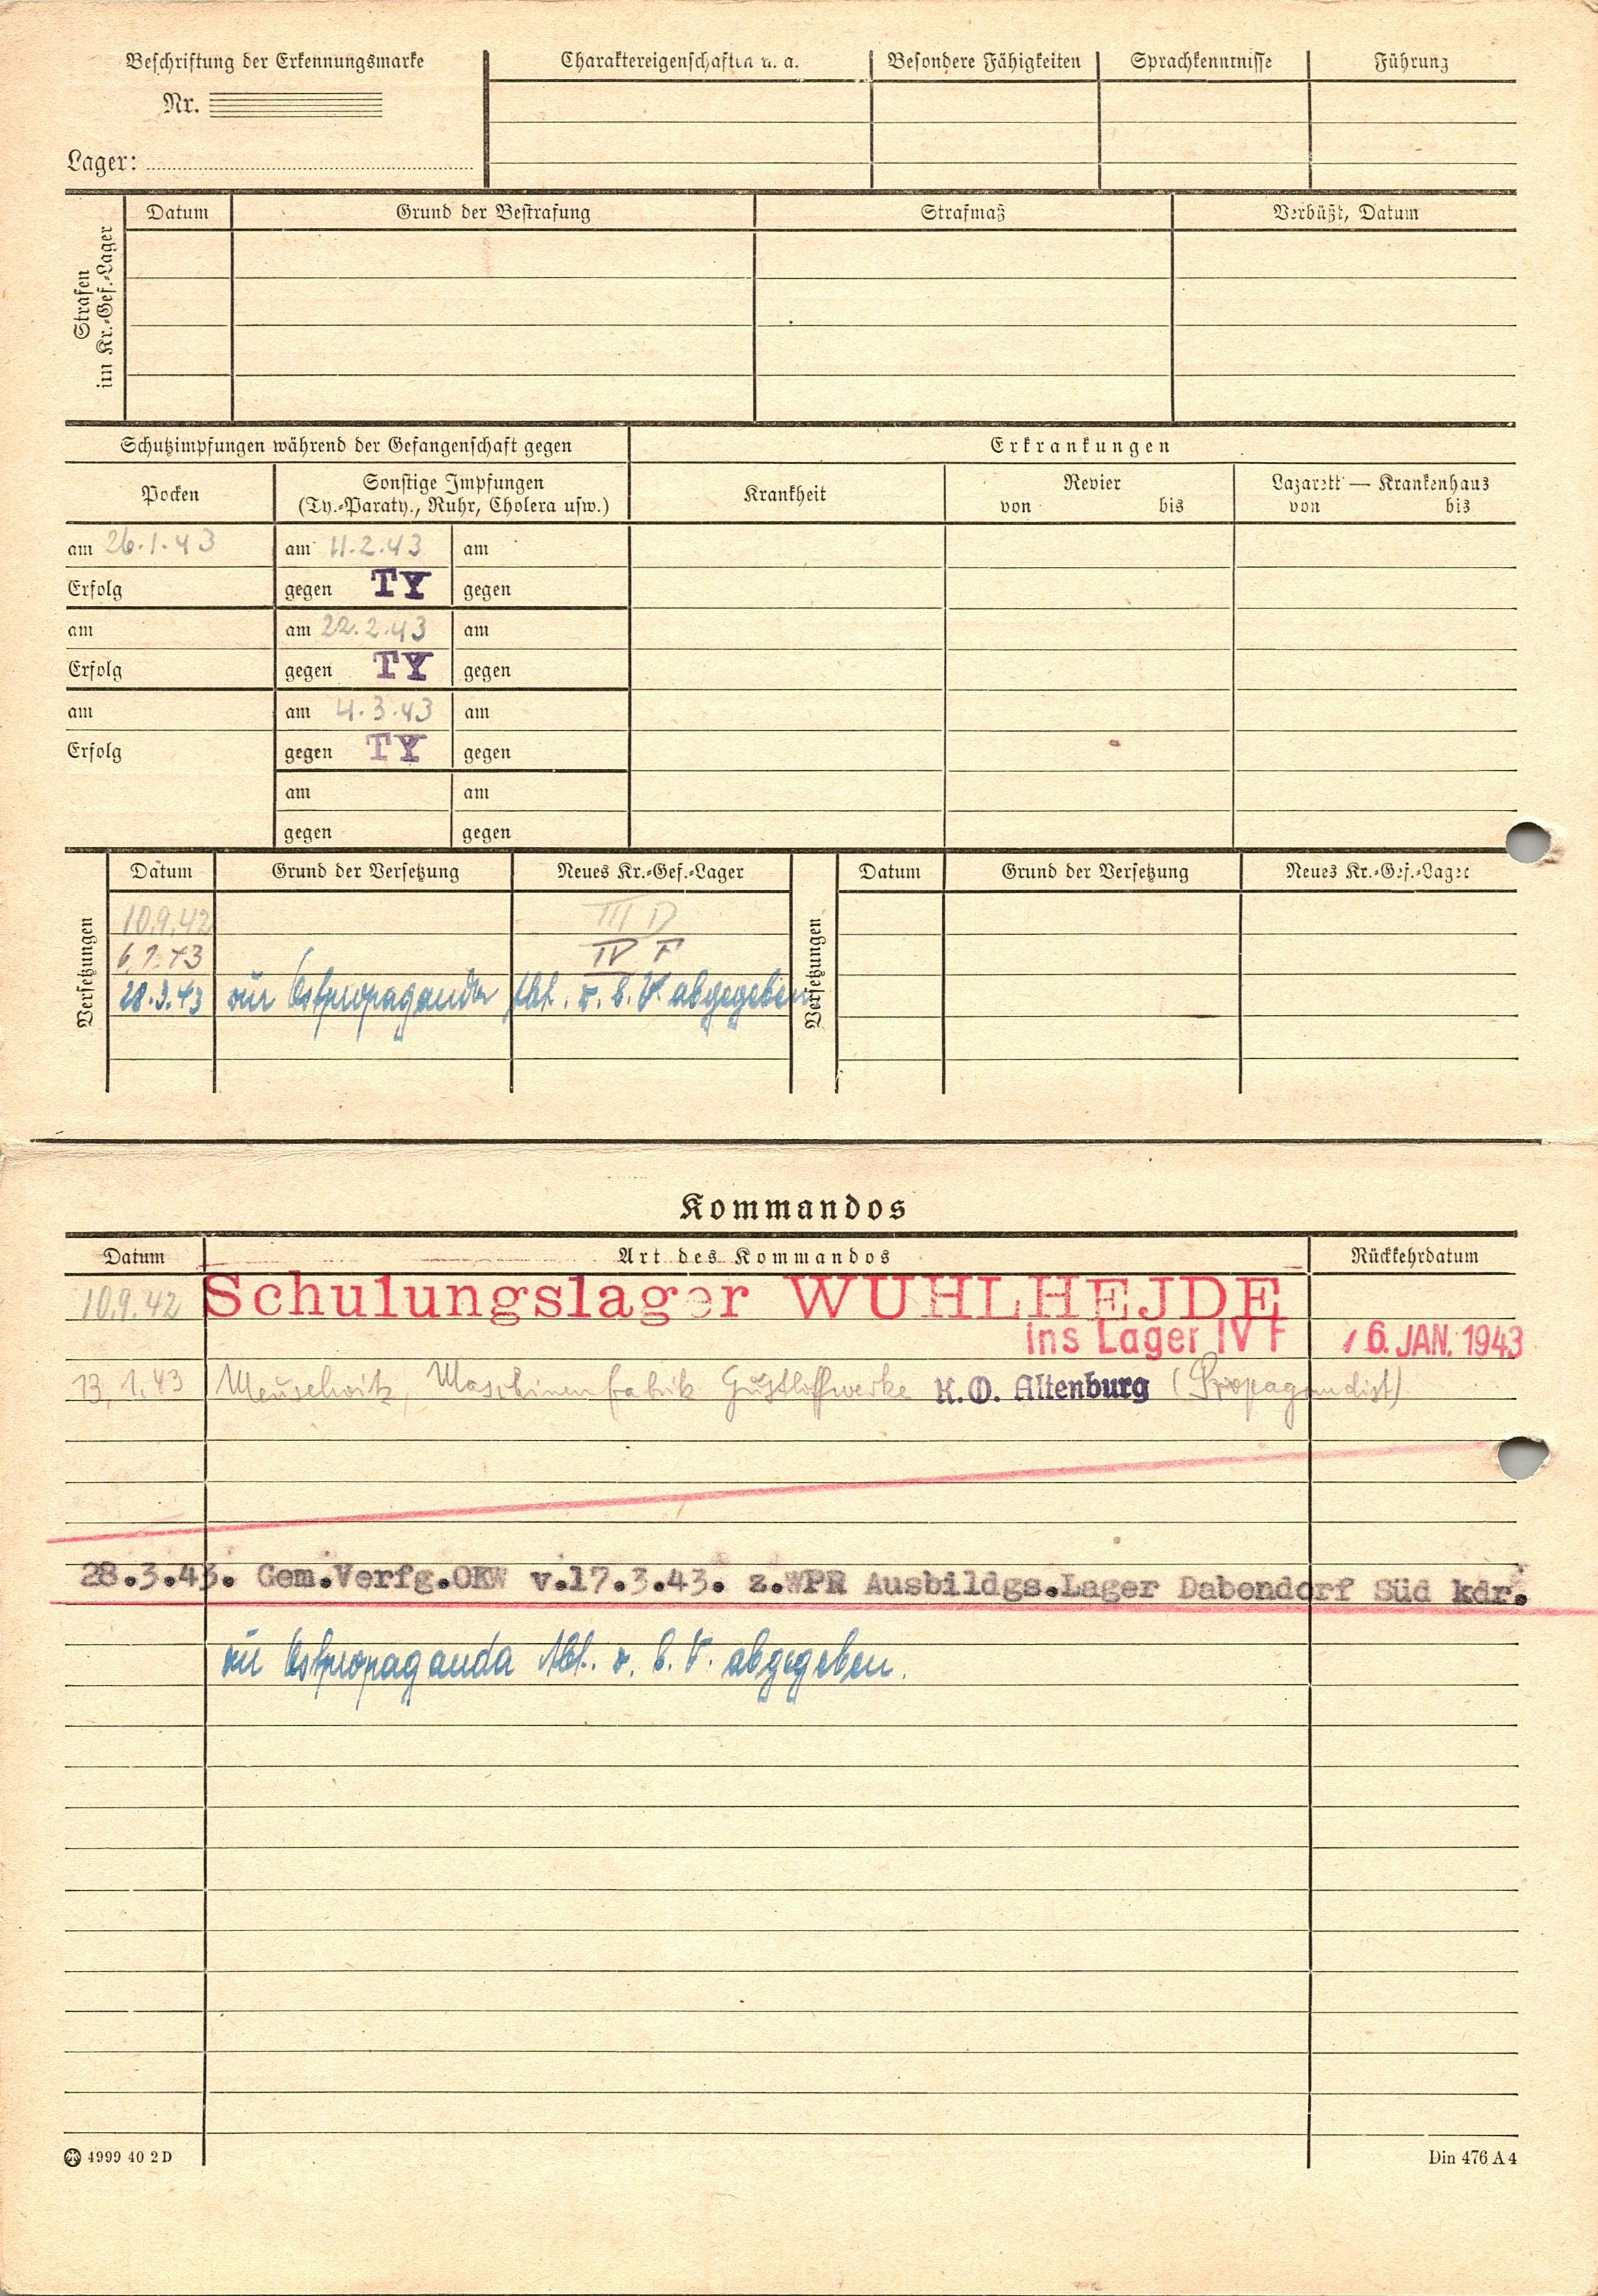 Beschriftung der Erkennungsmarke
Nr.
Lager:
Charaktereigenschaften u. a.
Besondere Fähigkeiten
Sprachkenntnisse
Führung
Strafen
im Kr.-Gef.-Lager
Datum
Grund der Bestrafung
Strafmaß
Verbüßt, Datum
Schutzimpfungen während der Gefangenschaft gegen
Erkrankungen
Pocken
Sonstige Impfungen
(Ty.-Paraty., Ruhr, Cholera usw.)
Krankheit
Revier
von bis
Lazarett — Krankenhaus
von bis
am 26.1.43 am 11.2.43 am
Erfolg gegen TY gegen
am am 22.2.43 am
Erfolg gegen TY gegen
am am 4.3.43 am
Erfolg gegen TY gegen
am am
gegen gegen
Versetzungen
Datum Grund der Versetzung Neues Kr.-Gef.-Lager
10.9.42 III D
6.1.43 IV F
28.3.43 zur Ostpropaganda Abt. z. b. V. abgegeben
Versetzungen
Datum Grund der Versetzung Neues Kr.-Gef.-Lager
Kommandos
Datum Art des Kommandos Rückkehrdatum
10.9.42 Schulungslager WUHLHEJDE
ins Lager IV F 6. JAN. 1943
13.1.43 Meuselwitz, Maschinenfabrik Gustloffwerke K.O. Altenburg (Propagandist).
28.3.43. Gem.Verfg.OKW v.17.3.43. z.WPR Ausbildgs.Lager Dabendorf Süd kdr.
zur Ostpropaganda Abt. z. b. V. abgegeben.
4999 40 2 D
Din 476 A 4